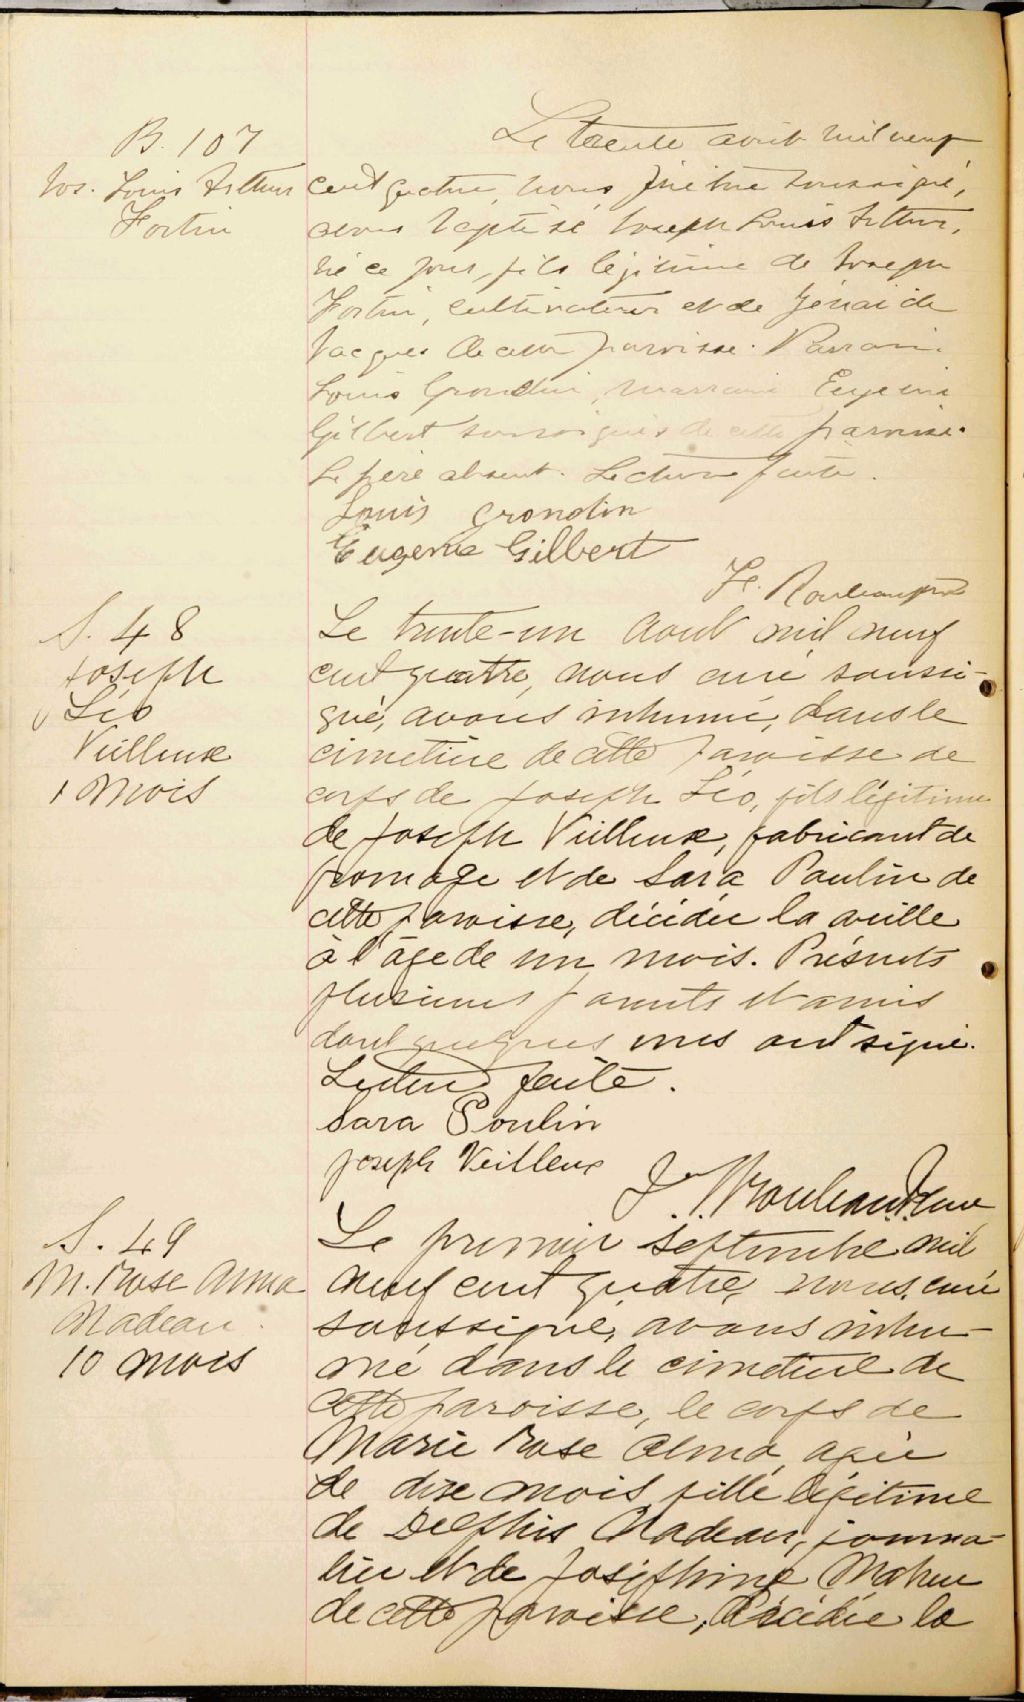 B. 107
Jos. Louis Arthur
Fortin
Le trente août mil neuf
cent quatre, nous, prêtre soussigné,
avons baptisé Joseph Louis Arthur,
né ce jour, fils légitime de Joseph
Fortin, cultivateur et de Zénaide
Jacques de cette paroisse. Parrain
Louis Grondin, marraine Eugenie
Gilbert soussignés de cette paroisse.
Le père absent. Lecture faite.
Louis Grondin
Eugenie Gilbert
Rouleau ptre
S. 48
Joseph
Léo
Veilleux
1 mois
Le trente-un Aout mil neuf
cent quatre, nous curé soussi-
gné, avons inhumé, dans le
cimetière de cette paroisse le
corps de Joseph Léo, fils légitime
de Joseph Veilleux, fabricant de
fromage et de Sara Poulin de
cette paroisse, décédée la veille
à l'âge de un mois. Présents
plusieurs parents et amis
dont quelques uns ont signé.
Lecture faite.
Sara Poulin
Joseph Veilleux
J. Rouleau Ptre Curé
S. 49
M. Rose Alma
Nadeau.
10 mois
Le premier Septembre mil
neuf cent quatre, nous, curé
soussigné, avons inhu-
mé dans le cimetière de
cette paroisse, le corps de
Marie Rose Alma, agée
de dix mois, fille légitime
de Delphis Nadeau, journa-
lier et de Joséphine Maheu
de cette paroisse, décédée la